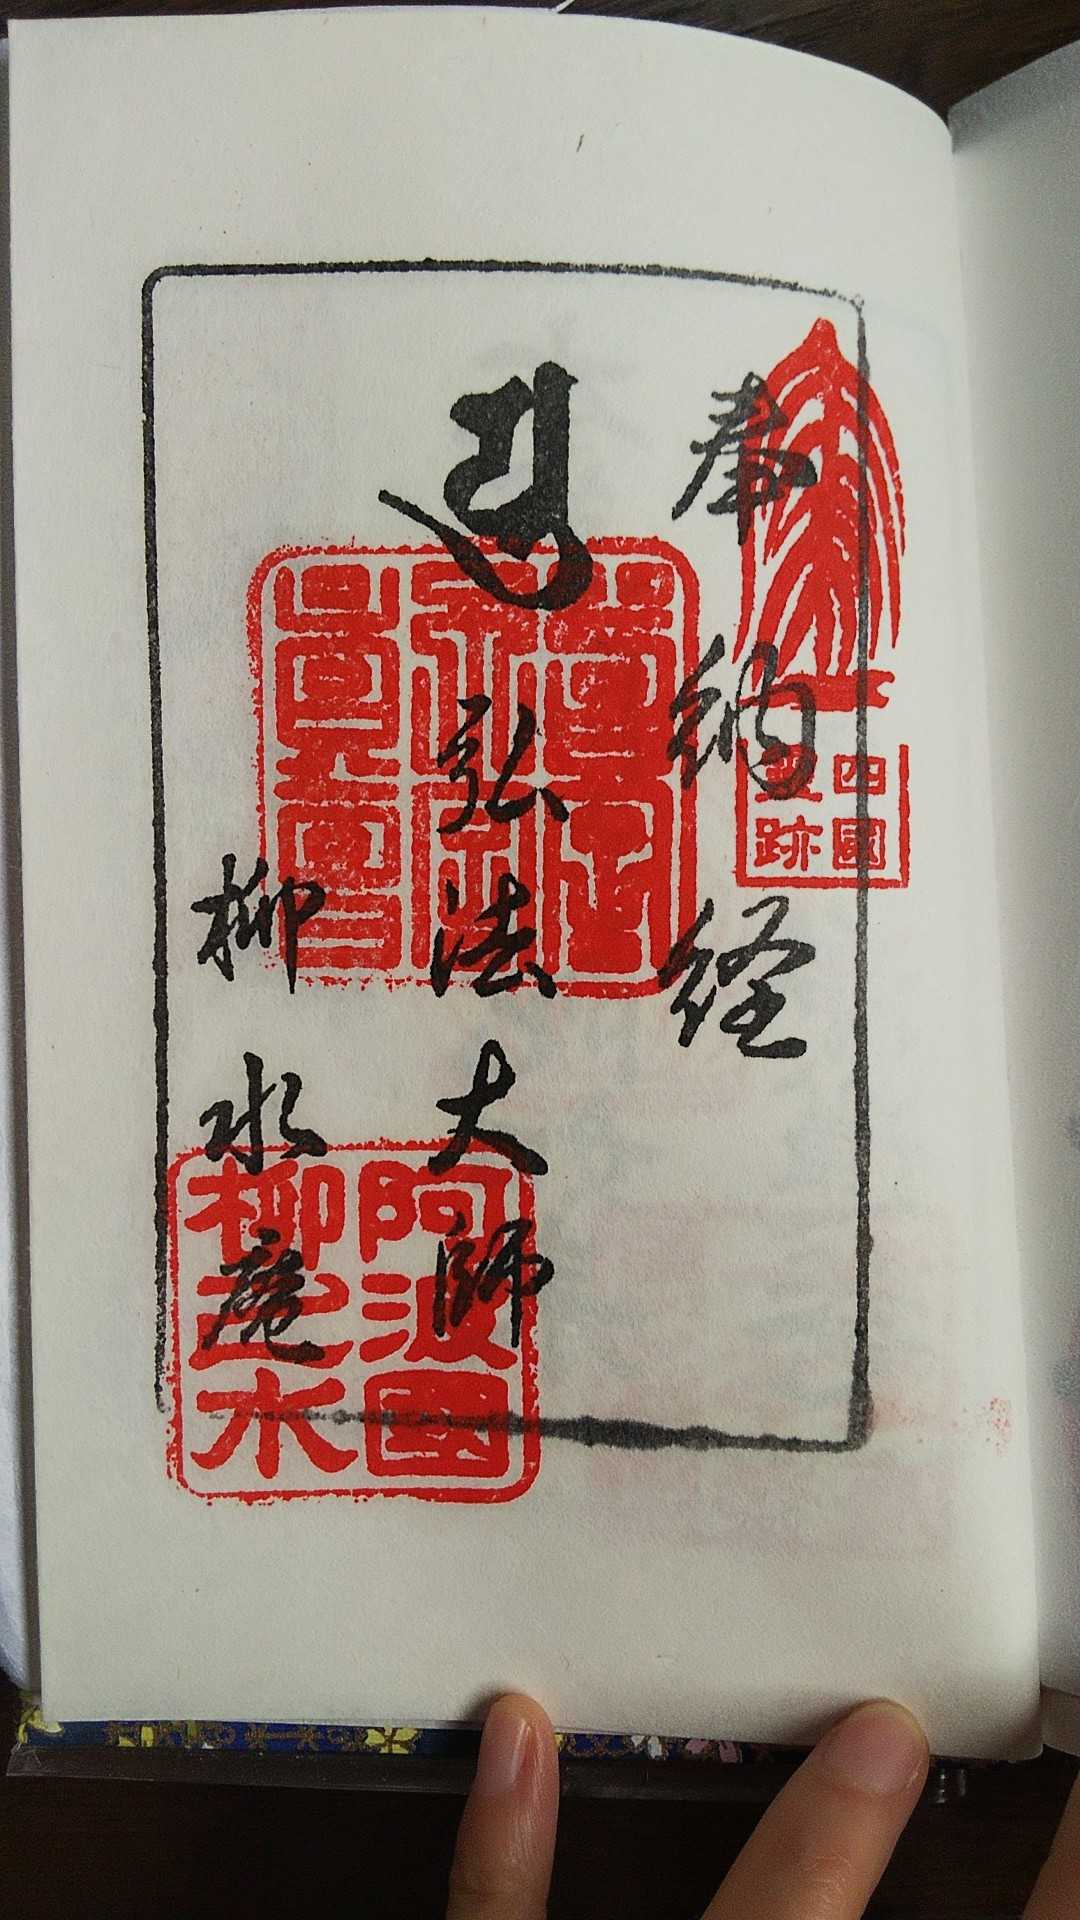 奉納経
四國
霊跡
弘法大師
柳水庵
阿波國
柳之水